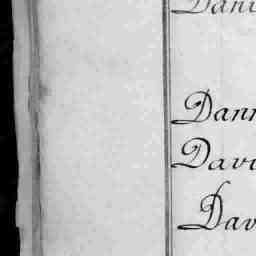 Dani
Dann
Davi
Dav